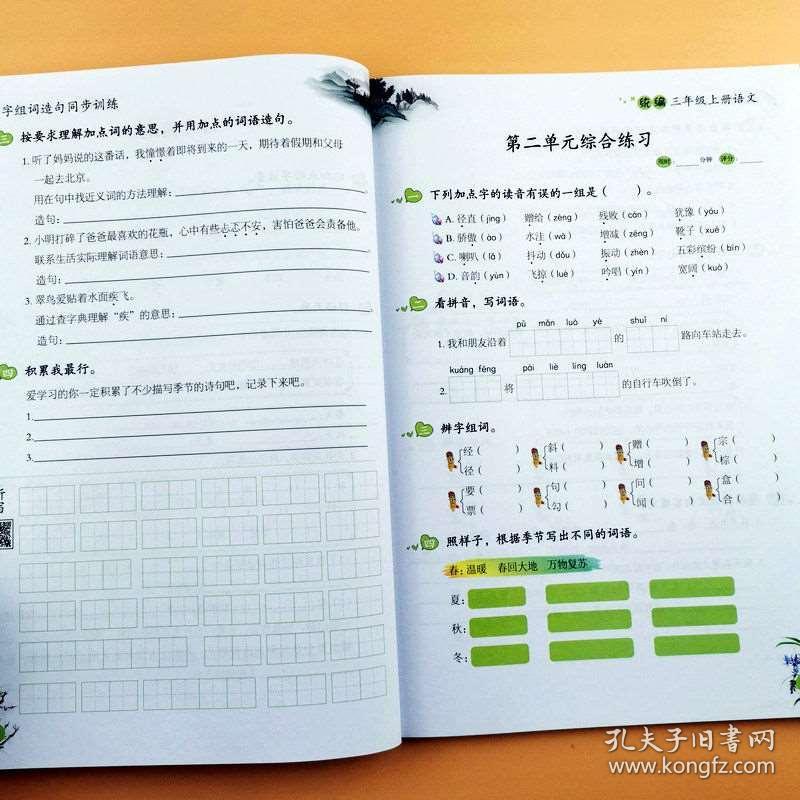 字组词造句同步训练
三 按要求理解加点词的意思，并用加点的词语造句。
1. 听了妈妈说的这番话，我憧憬着即将到来的一天，期待着假期和父母
一起去北京。
用在句中找近义词的方法理解：
造句：
2. 小明打碎了爸爸最喜欢的花瓶，心中有些忐忑不安，害怕爸爸会责备他。
联系生活实际理解词语意思：
造句：
3. 翠鸟爱贴着水面疾飞。
通过查字典理解“疾”的意思：
造句：
四 积累我最行。
爱学习的你一定积累了不少描写季节的诗句吧，记录下来吧。
1.
2.
3.
听写
统编 三年级上册语文
第二单元综合练习
限时：    分钟 评分：
一 下列加点字的读音有误的一组是（    ）。
A. 径直（jìng） 赠给（zèng） 残败（cán） 犹豫（yóu）
B. 骄傲（ào） 水洼（wà） 增减（zēng） 靴子（xuē）
C. 喇叭（lǎ） 抖动（dǒu） 振动（zhèn） 五彩缤纷（bīn）
D. 音韵（yùn） 飞掠（lüè） 吟唱（yín） 宽阔（kuò）
二 看拼音，写词语。
pū mǎn luò yè shuǐ ní
1. 我和朋友沿着 的 路向车站走去。
kuáng fēng pái liè líng luàn
2. 将 的自行车吹倒了。
三 辨字组词。
经（    ） 斜（    ） 赠（    ） 宗（    ）
径（    ） 料（    ） 增（    ） 棕（    ）
要（    ） 句（    ） 问（    ） 盒（    ）
票（    ） 勾（    ） 闻（    ） 合（    ）
四 照样子，根据季节写出不同的词语。
春：温暖 春回大地 万物复苏
夏：
秋：
冬：
孔夫子旧书网
www.kongfz.com